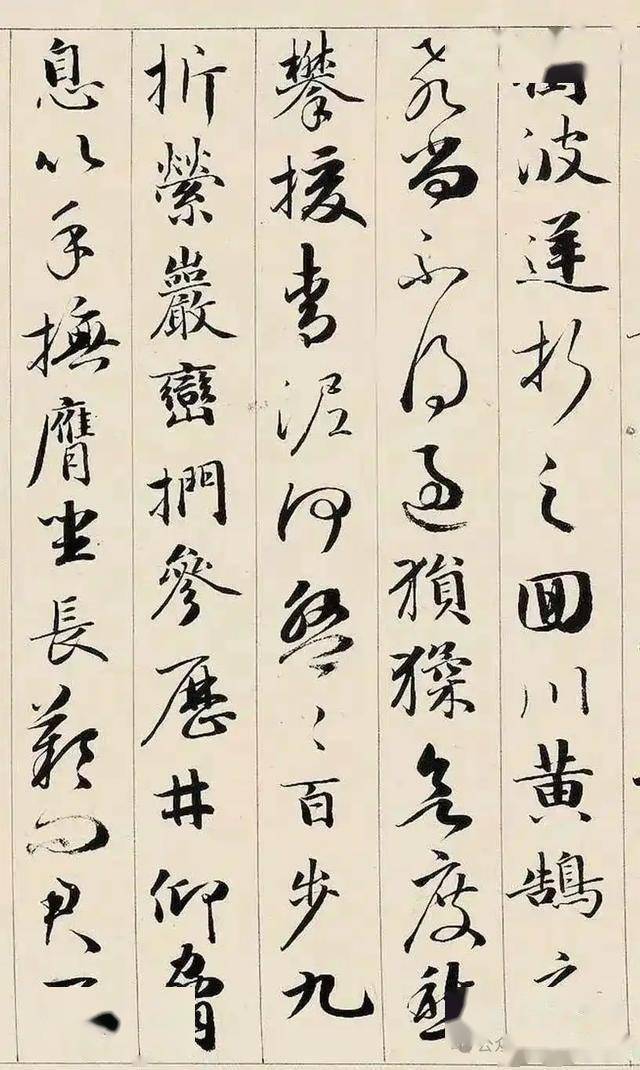 波逆折之回川黄鵠之
飛尚不得過猨猱欲度愁
攀援青泥何盤〻百步九
折縈巖巒捫參歷井仰脅
息以手撫膺坐長歎問君